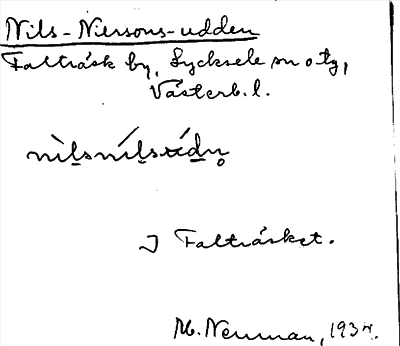 Nils-Niersons-udden
Falträsk by, Lycksele sn o tg,
Västerb. l.
I Falträsket.
M. Neuman, 1934.